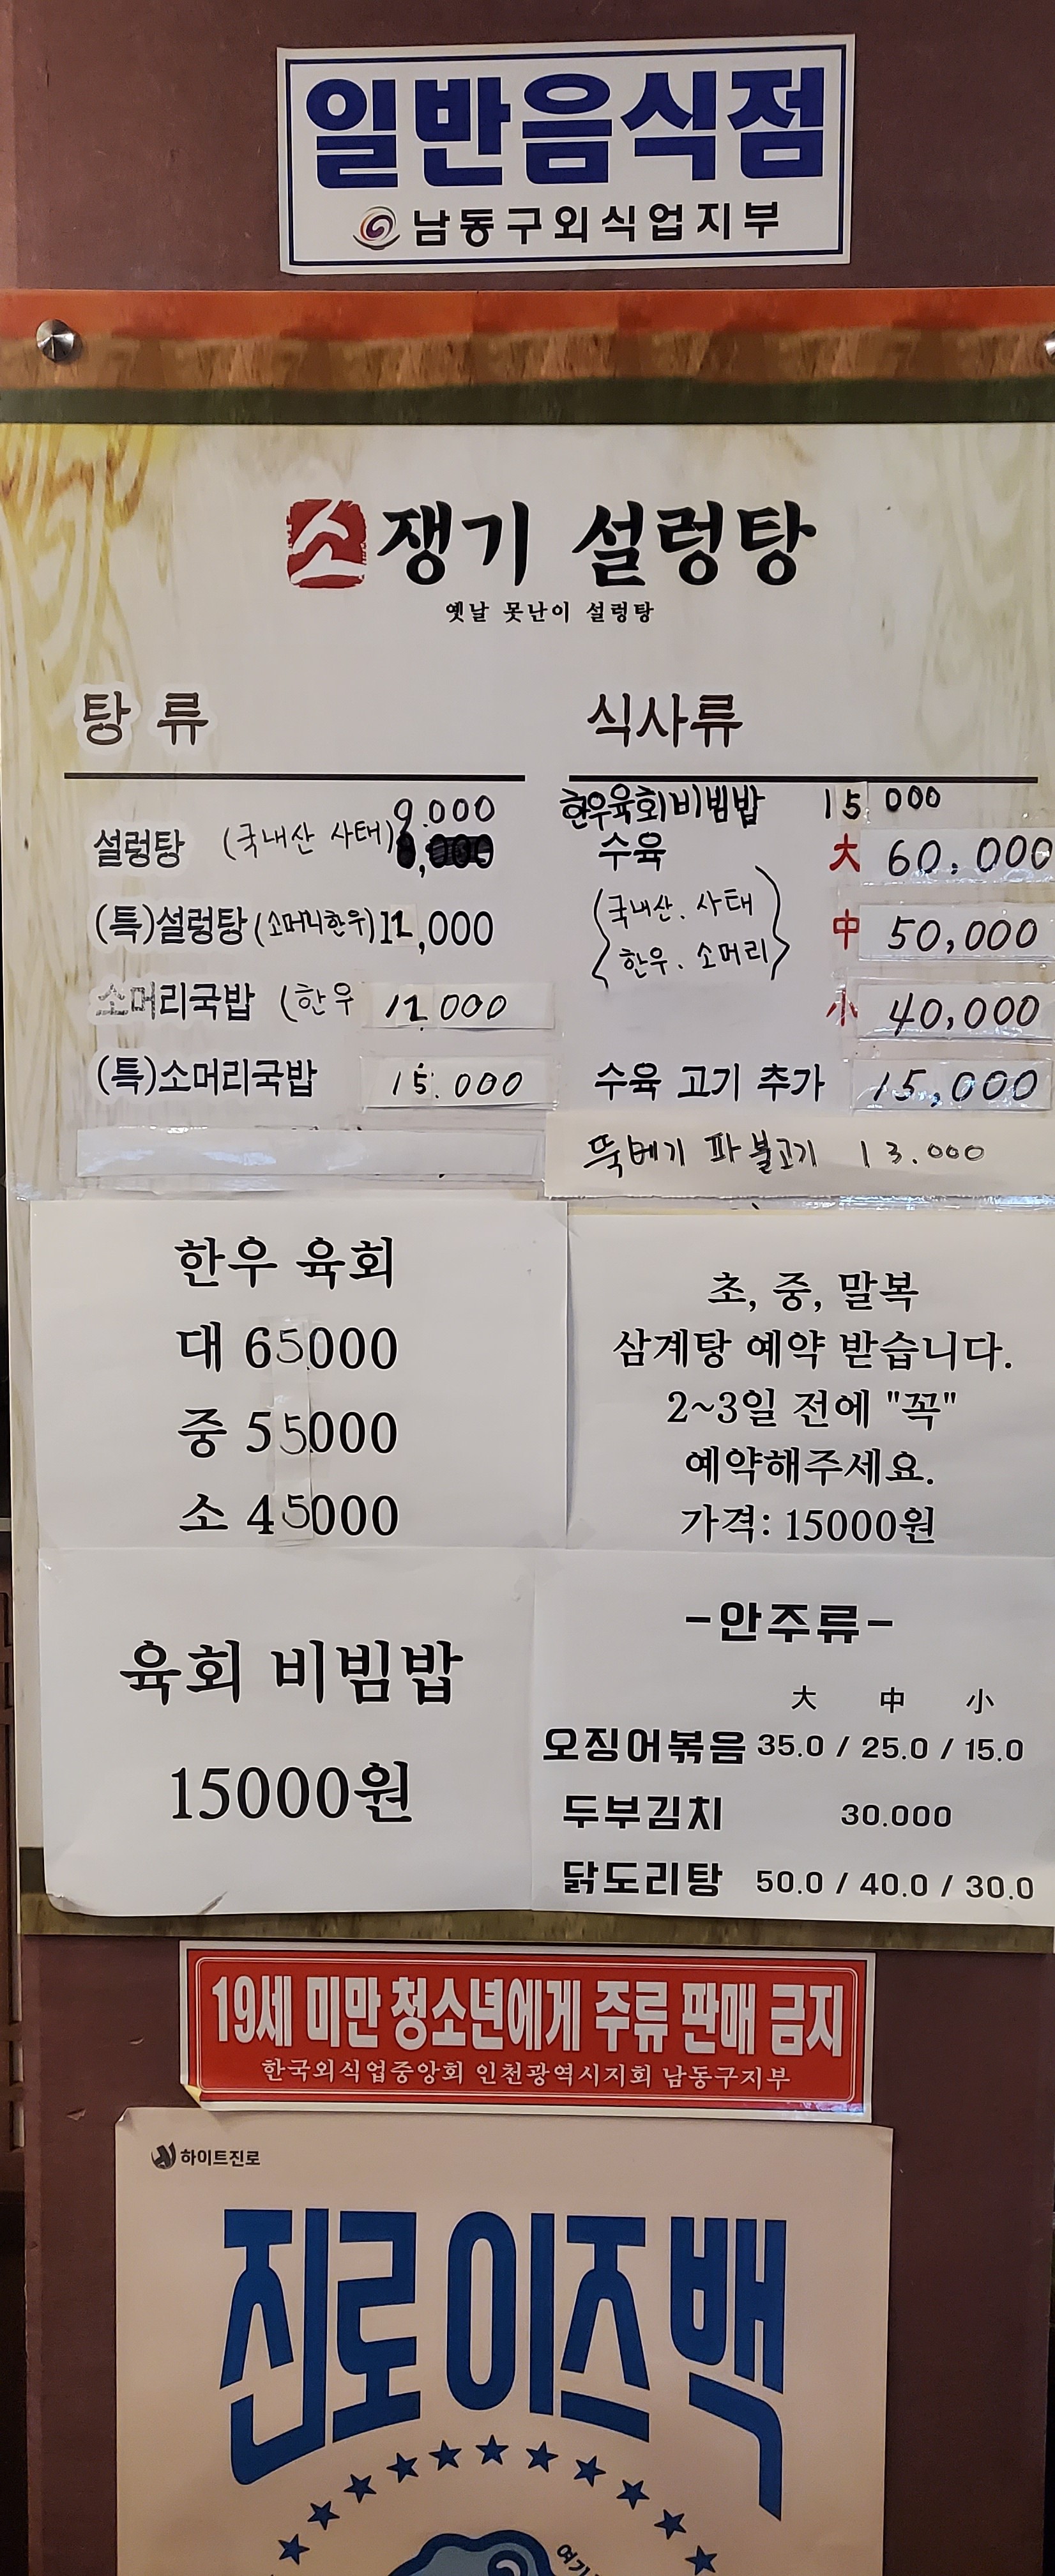 일반음식점
남동구외식업지부
소쟁기 설렁탕
옛날 못난이 설렁탕
탕 류
설렁탕 (국내산 사태) 9.000
(특)설렁탕(소머리한우) 12,000
소머리국밥 (한우 12.000
(특)소머리국밥 15.000
식사류
한우육회비빔밥 15 000
수육 大 60.000
(국내산. 사태 中 50,000
한우. 소머리) 小 40,000
수육 고기 추가 15,000
뚝베기 파불고기 13.000
한우 육회
대 65000
중 55000
소 45000
초, 중, 말복
삼계탕 예약 받습니다.
2~3일 전에 "꼭"
예약해주세요.
가격: 15000원
육회 비빔밥
15000원
-안주류-
大 中 小
오징어볶음 35.0 / 25.0 / 15.0
두부김치 30.000
닭도리탕 50.0 / 40.0 / 30.0
19세 미만 청소년에게 주류 판매 금지
한국외식업중앙회 인천광역시지회 남동구지부
하이트진로
진로이즈백